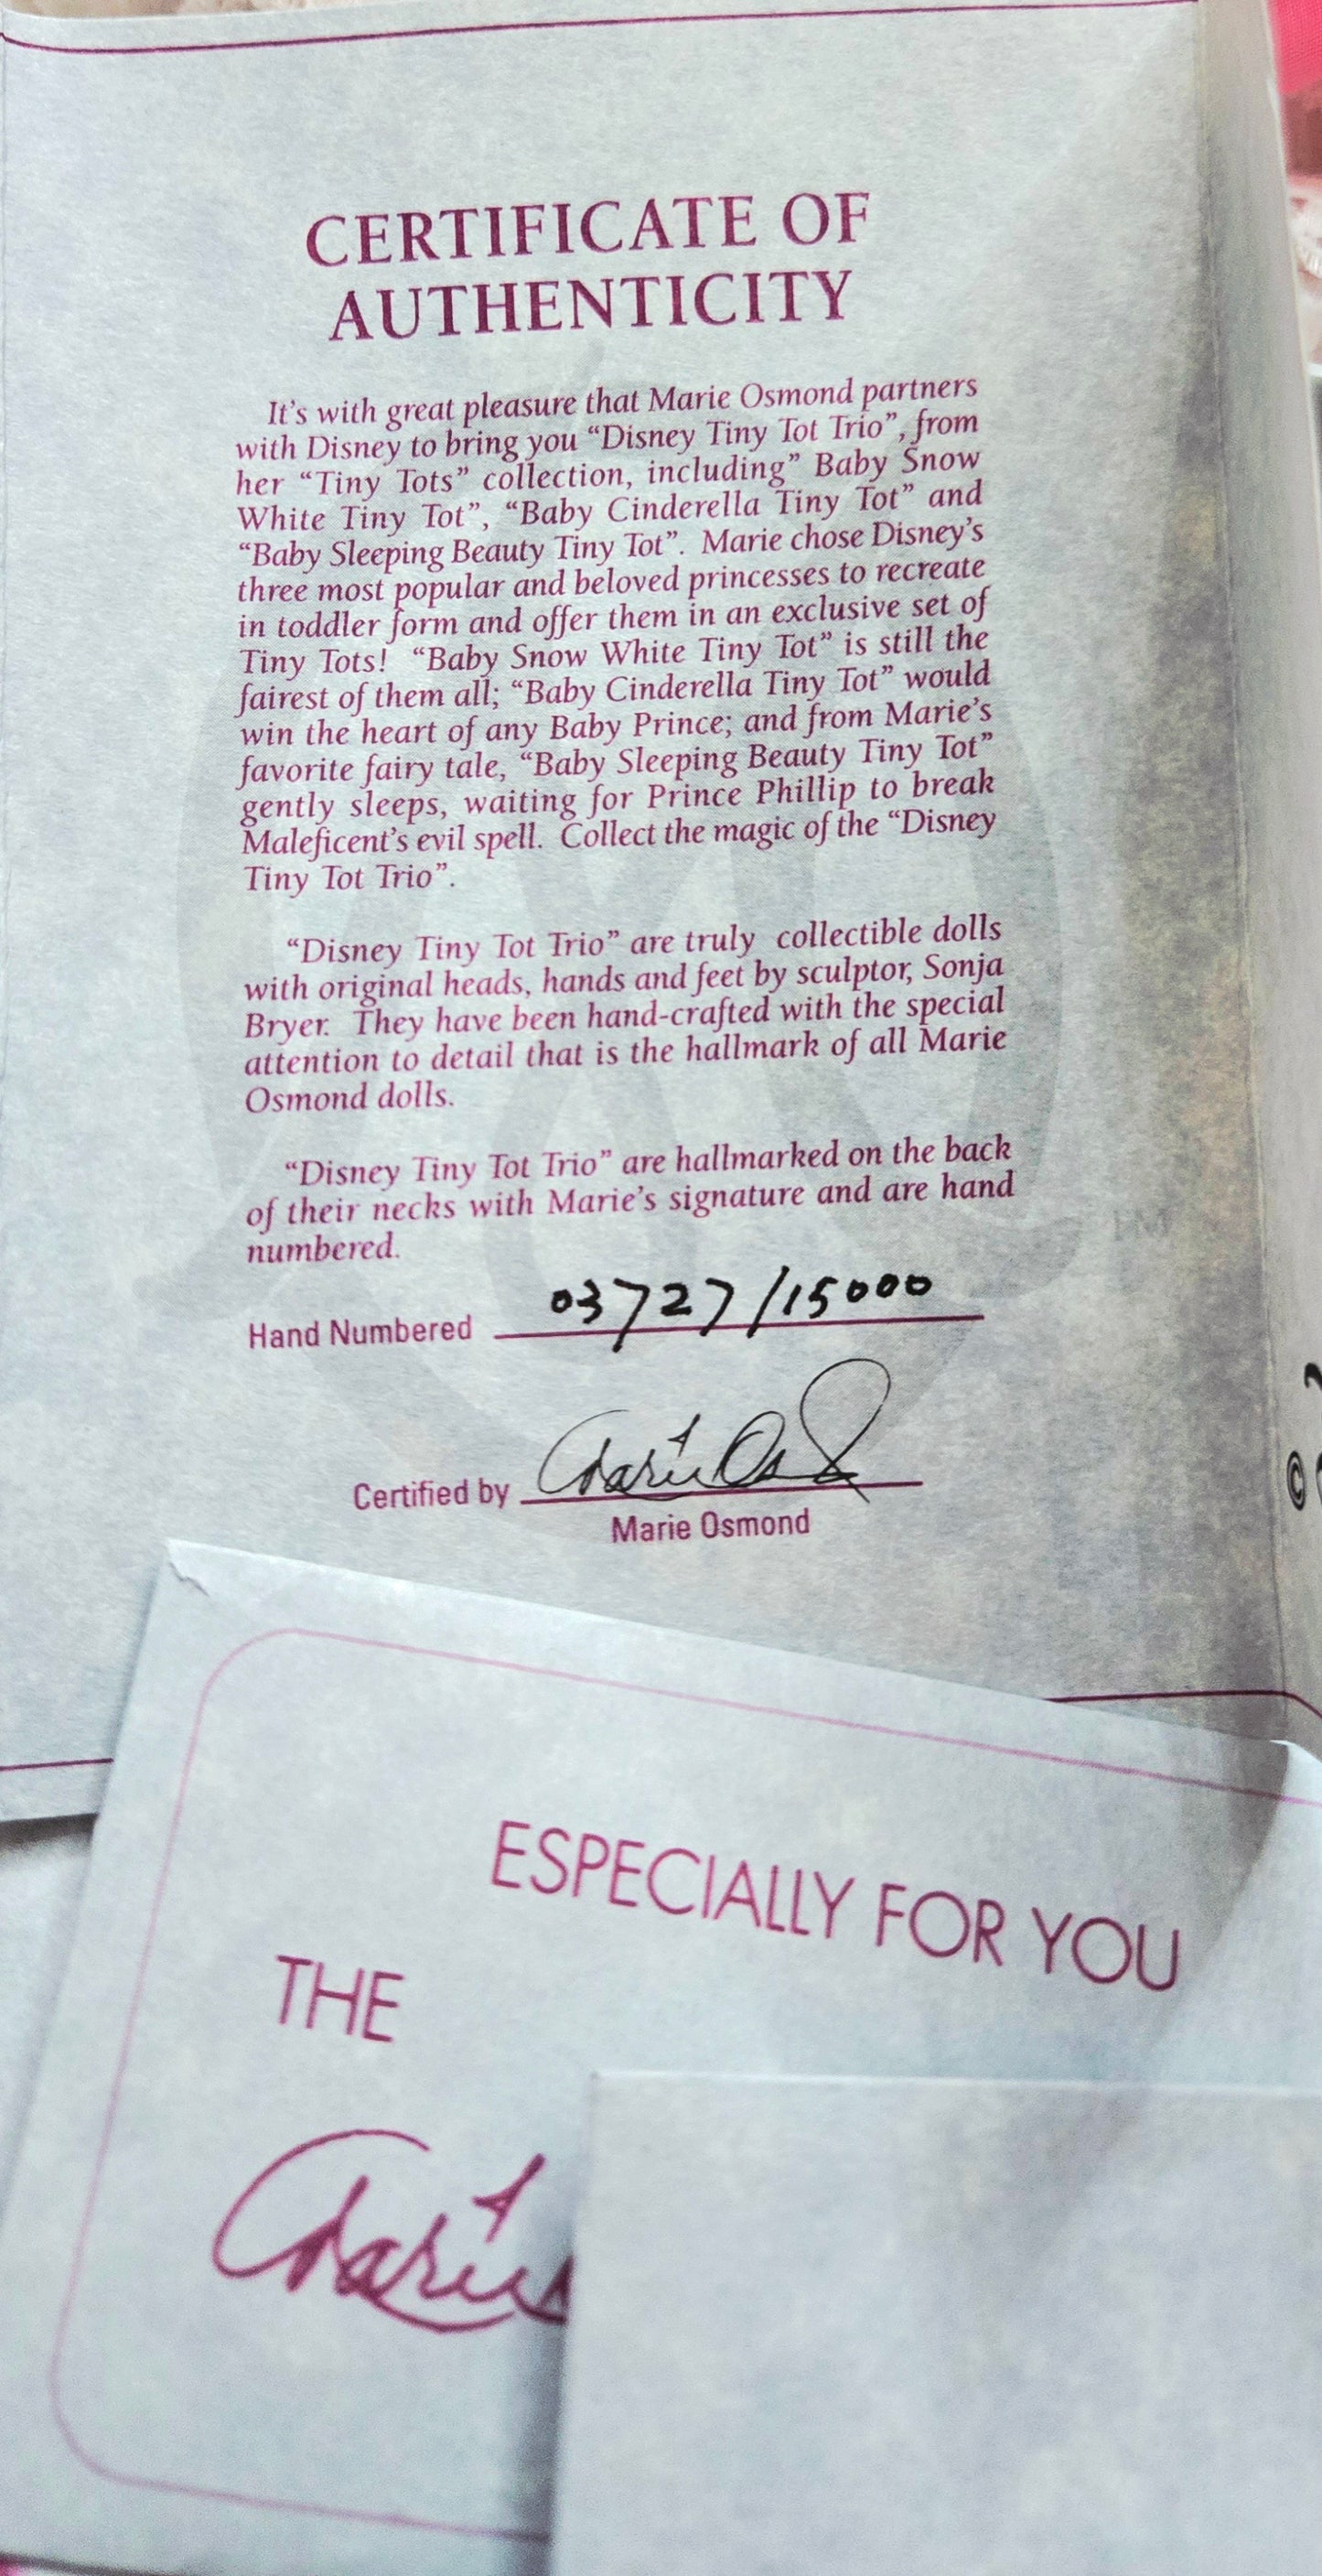 CERTIFICATE OF
AUTHENTICITY
It's with great pleasure that Marie Osmond partners
with Disney to bring you “Disney Tiny Tot Trio”, from
her “Tiny Tots” collection, including” Baby Snow
White Tiny Tot”, “Baby Cinderella Tiny Tot” and
“Baby Sleeping Beauty Tiny Tot”. Marie chose Disney's
three most popular and beloved princesses to recreate
in toddler form and offer them in an exclusive set of
Tiny Tots! “Baby Snow White Tiny Tot” is still the
fairest of them all; “Baby Cinderella Tiny Tot” would
win the heart of any Baby Prince; and from Marie's
favorite fairy tale, “Baby Sleeping Beauty Tiny Tot”
gently sleeps, waiting for Prince Phillip to break
Maleficent's evil spell. Collect the magic of the “Disney
Tiny Tot Trio”.
“Disney Tiny Tot Trio” are truly collectible dolls
with original heads, hands and feet by sculptor, Sonja
Bryer. They have been hand-crafted with the special
attention to detail that is the hallmark of all Marie
Osmond dolls.
“Disney Tiny Tot Trio” are hallmarked on the back
of their necks with Marie's signature and are hand
numbered.
Hand Numbered 03727/15000
Certified by Marie Osmond
Marie Osmond
©
ESPECIALLY FOR YOU
THE
Marie